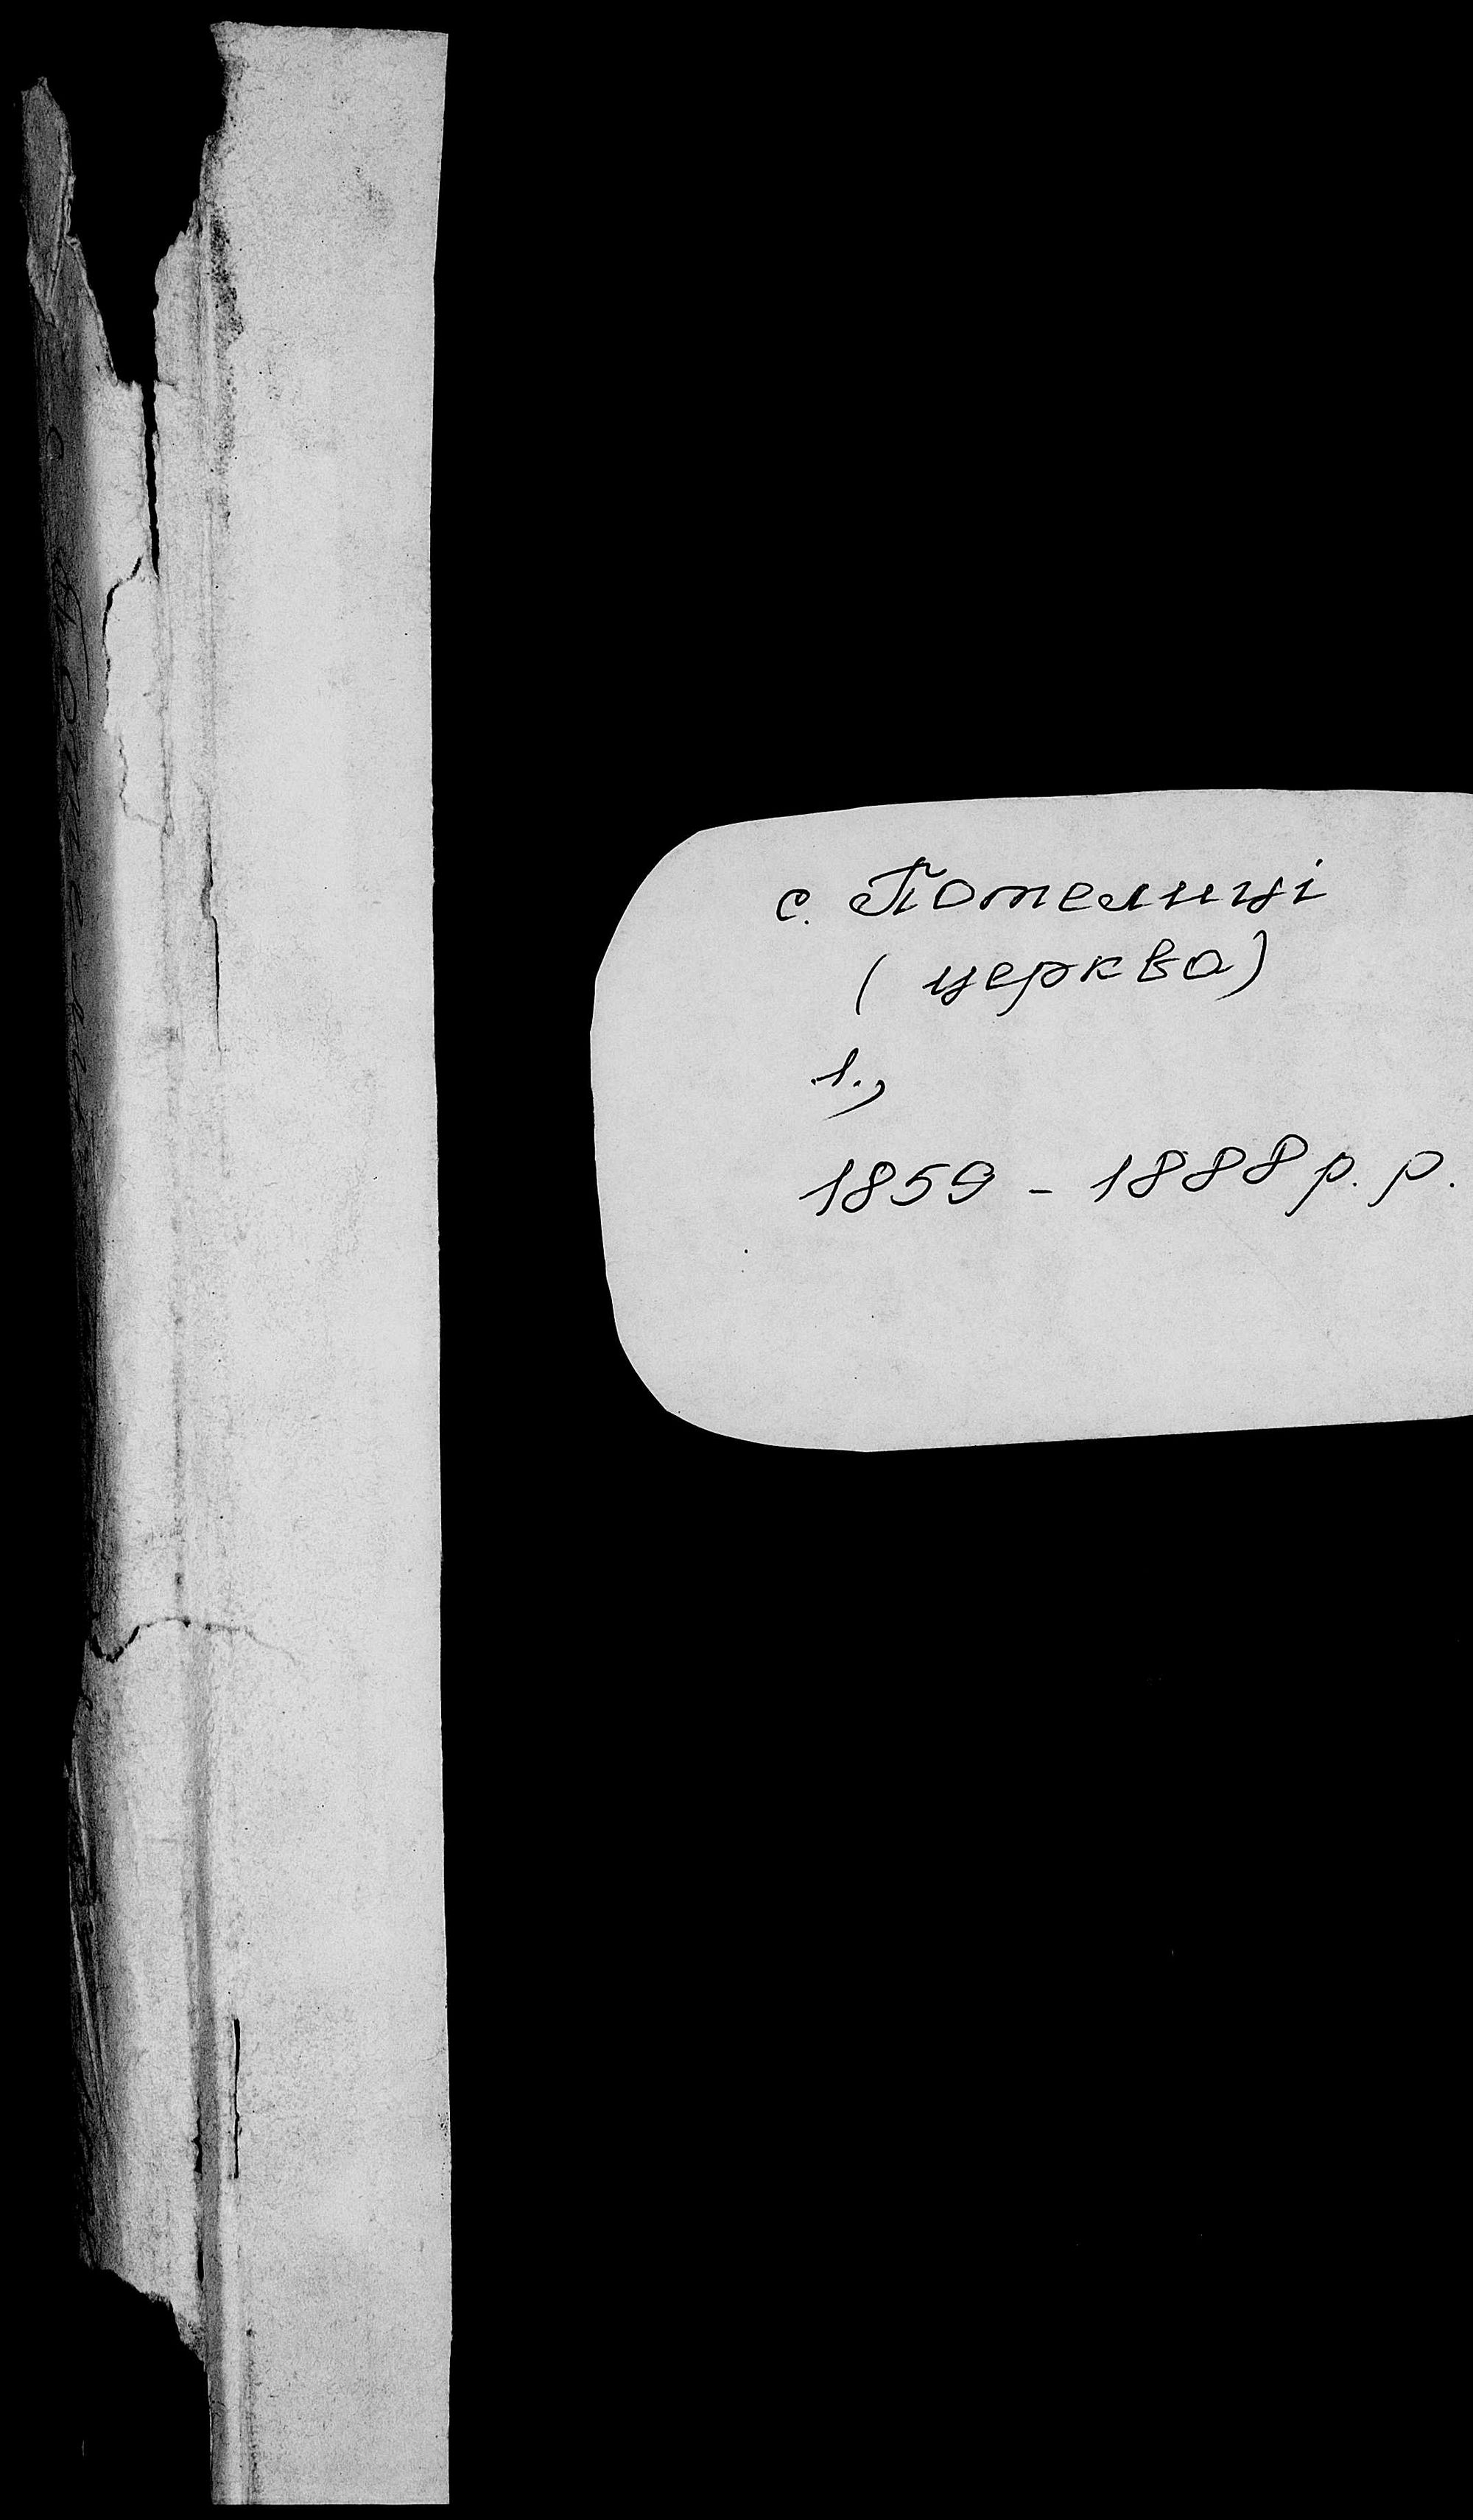 с. Потеличі
( церква)
1.,
1859 - 1888 р. р.